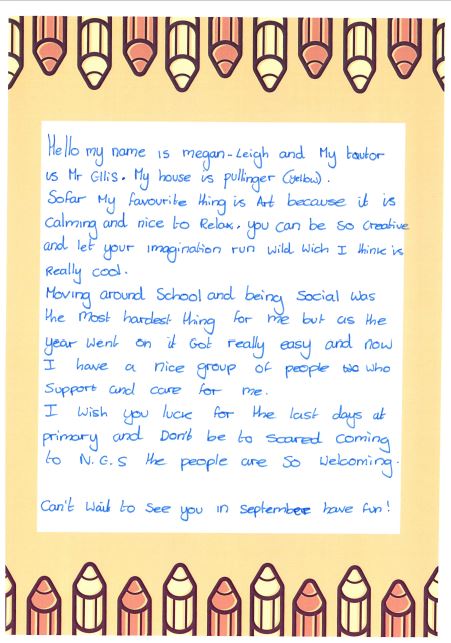 Hello my name is megan-Leigh and My toutor
is Mr Ellis. My house is pullinger (yellow).
Sofar My favourite thing is Art because it is
calming and nice to Relax, you can be so creative
and let your imagination run wild wich I think is
Really cool.
Moving around School and being Social was
the most hardest thing for me but as the
year went on it Got really easy and now
I have a nice group of people who
Support and care for me.
I wish you luck for the last days at
primary and Don't be to scared coming
to N.G.S the people are so welcoming.
Can't wait to see you in september have fun!